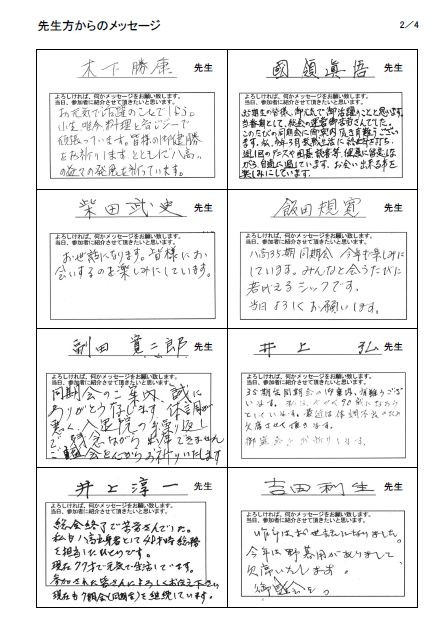 先生方からのメッセージ
2／4
木下勝康 先生
よろしければ、何かメッセージをお願い致します。
当日、参加者に紹介させて頂きたいと思います。
お元気でご活躍のことでしょう。
小生 唯今 料理と
頑張っています。皆様の御健勝
をお祈りしますとともに"八高"
の益々の発展を祈っています。
國領眞悟 先生
よろしければ、何かメッセージをお願い致します。
当日、参加者に紹介させて頂きたいと思います。
お元気でご活躍のことと思います。
当番期として、総会の運営御苦労さんでした。
この度の同期会に御案内頂き有難うござ
います。私、今年3月
週1回のテニスや園芸、読書等、健康に留意しな
がら自適に過しています。お会い出来る事を
楽しみにしています。
柴田武史 先生
よろしければ、何かメッセージをお願い致します。
当日、参加者に紹介させて頂きたいと思います。
お世話になります。皆様にお
会いするのを楽しみにしています。
飯田規寛 先生
よろしければ、何かメッセージをお願い致します。
当日、参加者に紹介させて頂きたいと思います。
八高35期同期会 今年も楽しみに
しています。みんなと会うたびに
若がえるシックです。
当日よろしくお願いします。
副田寛二郎 先生
よろしければ、何かメッセージをお願い致します。
当日、参加者に紹介させて頂きたいと思います。
同期会のご案内、誠に
ありがとう存じます。体調が
悪く、入退院の繰り返し
で、残念ながら出席できません
ご盛会を心からお祈りいたします
井上弘 先生
よろしければ、何かメッセージをお願い致します。
当日、参加者に紹介させて頂きたいと思います。
35期生同期会の御案内、有難うござ
います。私は 90歳になろう
としています。最近は体調不良のため
欠席させて頂きます。
御盛会をお祈りします。
井上淳一 先生
よろしければ、何かメッセージをお願い致します。
当日、参加者に紹介させて頂きたいと思います。
総会終了で苦労さんでした。
私も八高出身者として 総務
を担当したひとりです。
現在77才で元気で生活しています。
参加された皆さんによろしくお伝え下さい。
現在も7期会(同期会)を継続しています。
吉田利生 先生
よろしければ、何かメッセージをお願い致します。
当日、参加者に紹介させて頂きたいと思います。
昨年はお世話になりました。
今年は野暮用がありまして
欠席いたします。
御盛会を。